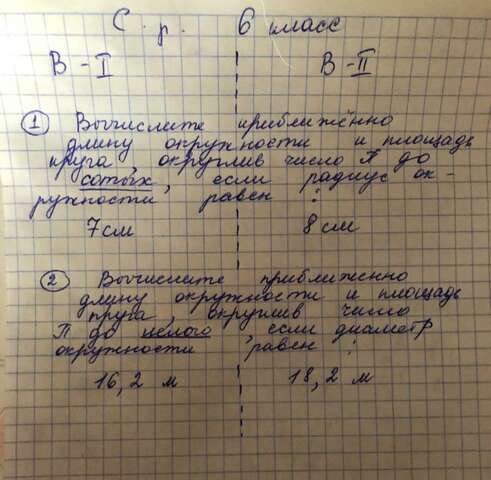 С. р. 6 класс
В - I В - II
1 Вычислите приближённо
длину окружности и площадь
круга, округлив число π до
сотых, если радиус ок-
ружности равен :
7 см 8 см
2 Вычислите приближенно
длину окружности и площадь
круга, округлив число
π до целого, если диаметр
окружности равен :
16,2 м 18,2 м